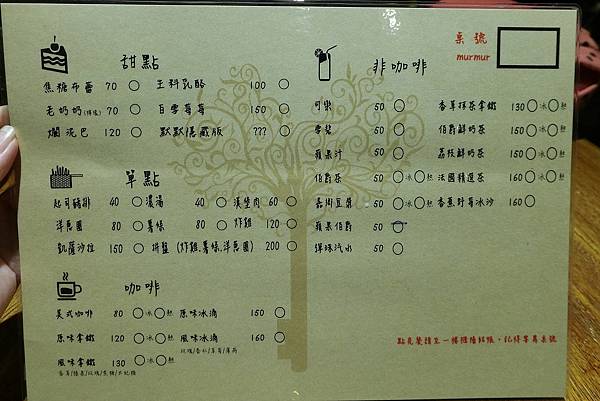 桌號
murmur
甜點
焦糖布蕾 70 ○ 王科乳酪 100 ○
老奶奶(檸檬) 70 ○ 百香莓莓 150 ○
爛泥巴 120 ○ 默默隱藏版 ??? ○
單點
起司豬排 40 ○ 濃湯 40 ○ 漢堡肉 60 ○
洋蔥圈 80 ○ 薯條 80 ○ 炸雞 120 ○
凱薩沙拉 150 ○ 拼盤 (炸雞.薯條.洋蔥圈) 200 ○
咖啡
美式咖啡 80 ○冰○熱 原味冰滴 150 ○
原味拿鐵 120 ○冰○熱 風味冰滴 160 ○
風味拿鐵 130 ○冰○熱
非咖啡
可樂 50 ○ 香草抹茶拿鐵 130○冰○熱
雪碧 50 ○ 伯爵鮮奶茶 150○冰○熱
蘋果汁 50 ○ 荔枝鮮奶茶 150○冰○熱
伯爵茶 50 ○冰○熱 法國精選茶 160○冰○熱
50 ○冰○熱 香蕉可可冰沙 160○
蘋果伯爵 50 ○
彈珠汽水 50 ○
點完餐請至一樓櫃檯結帳，記得要寫桌號